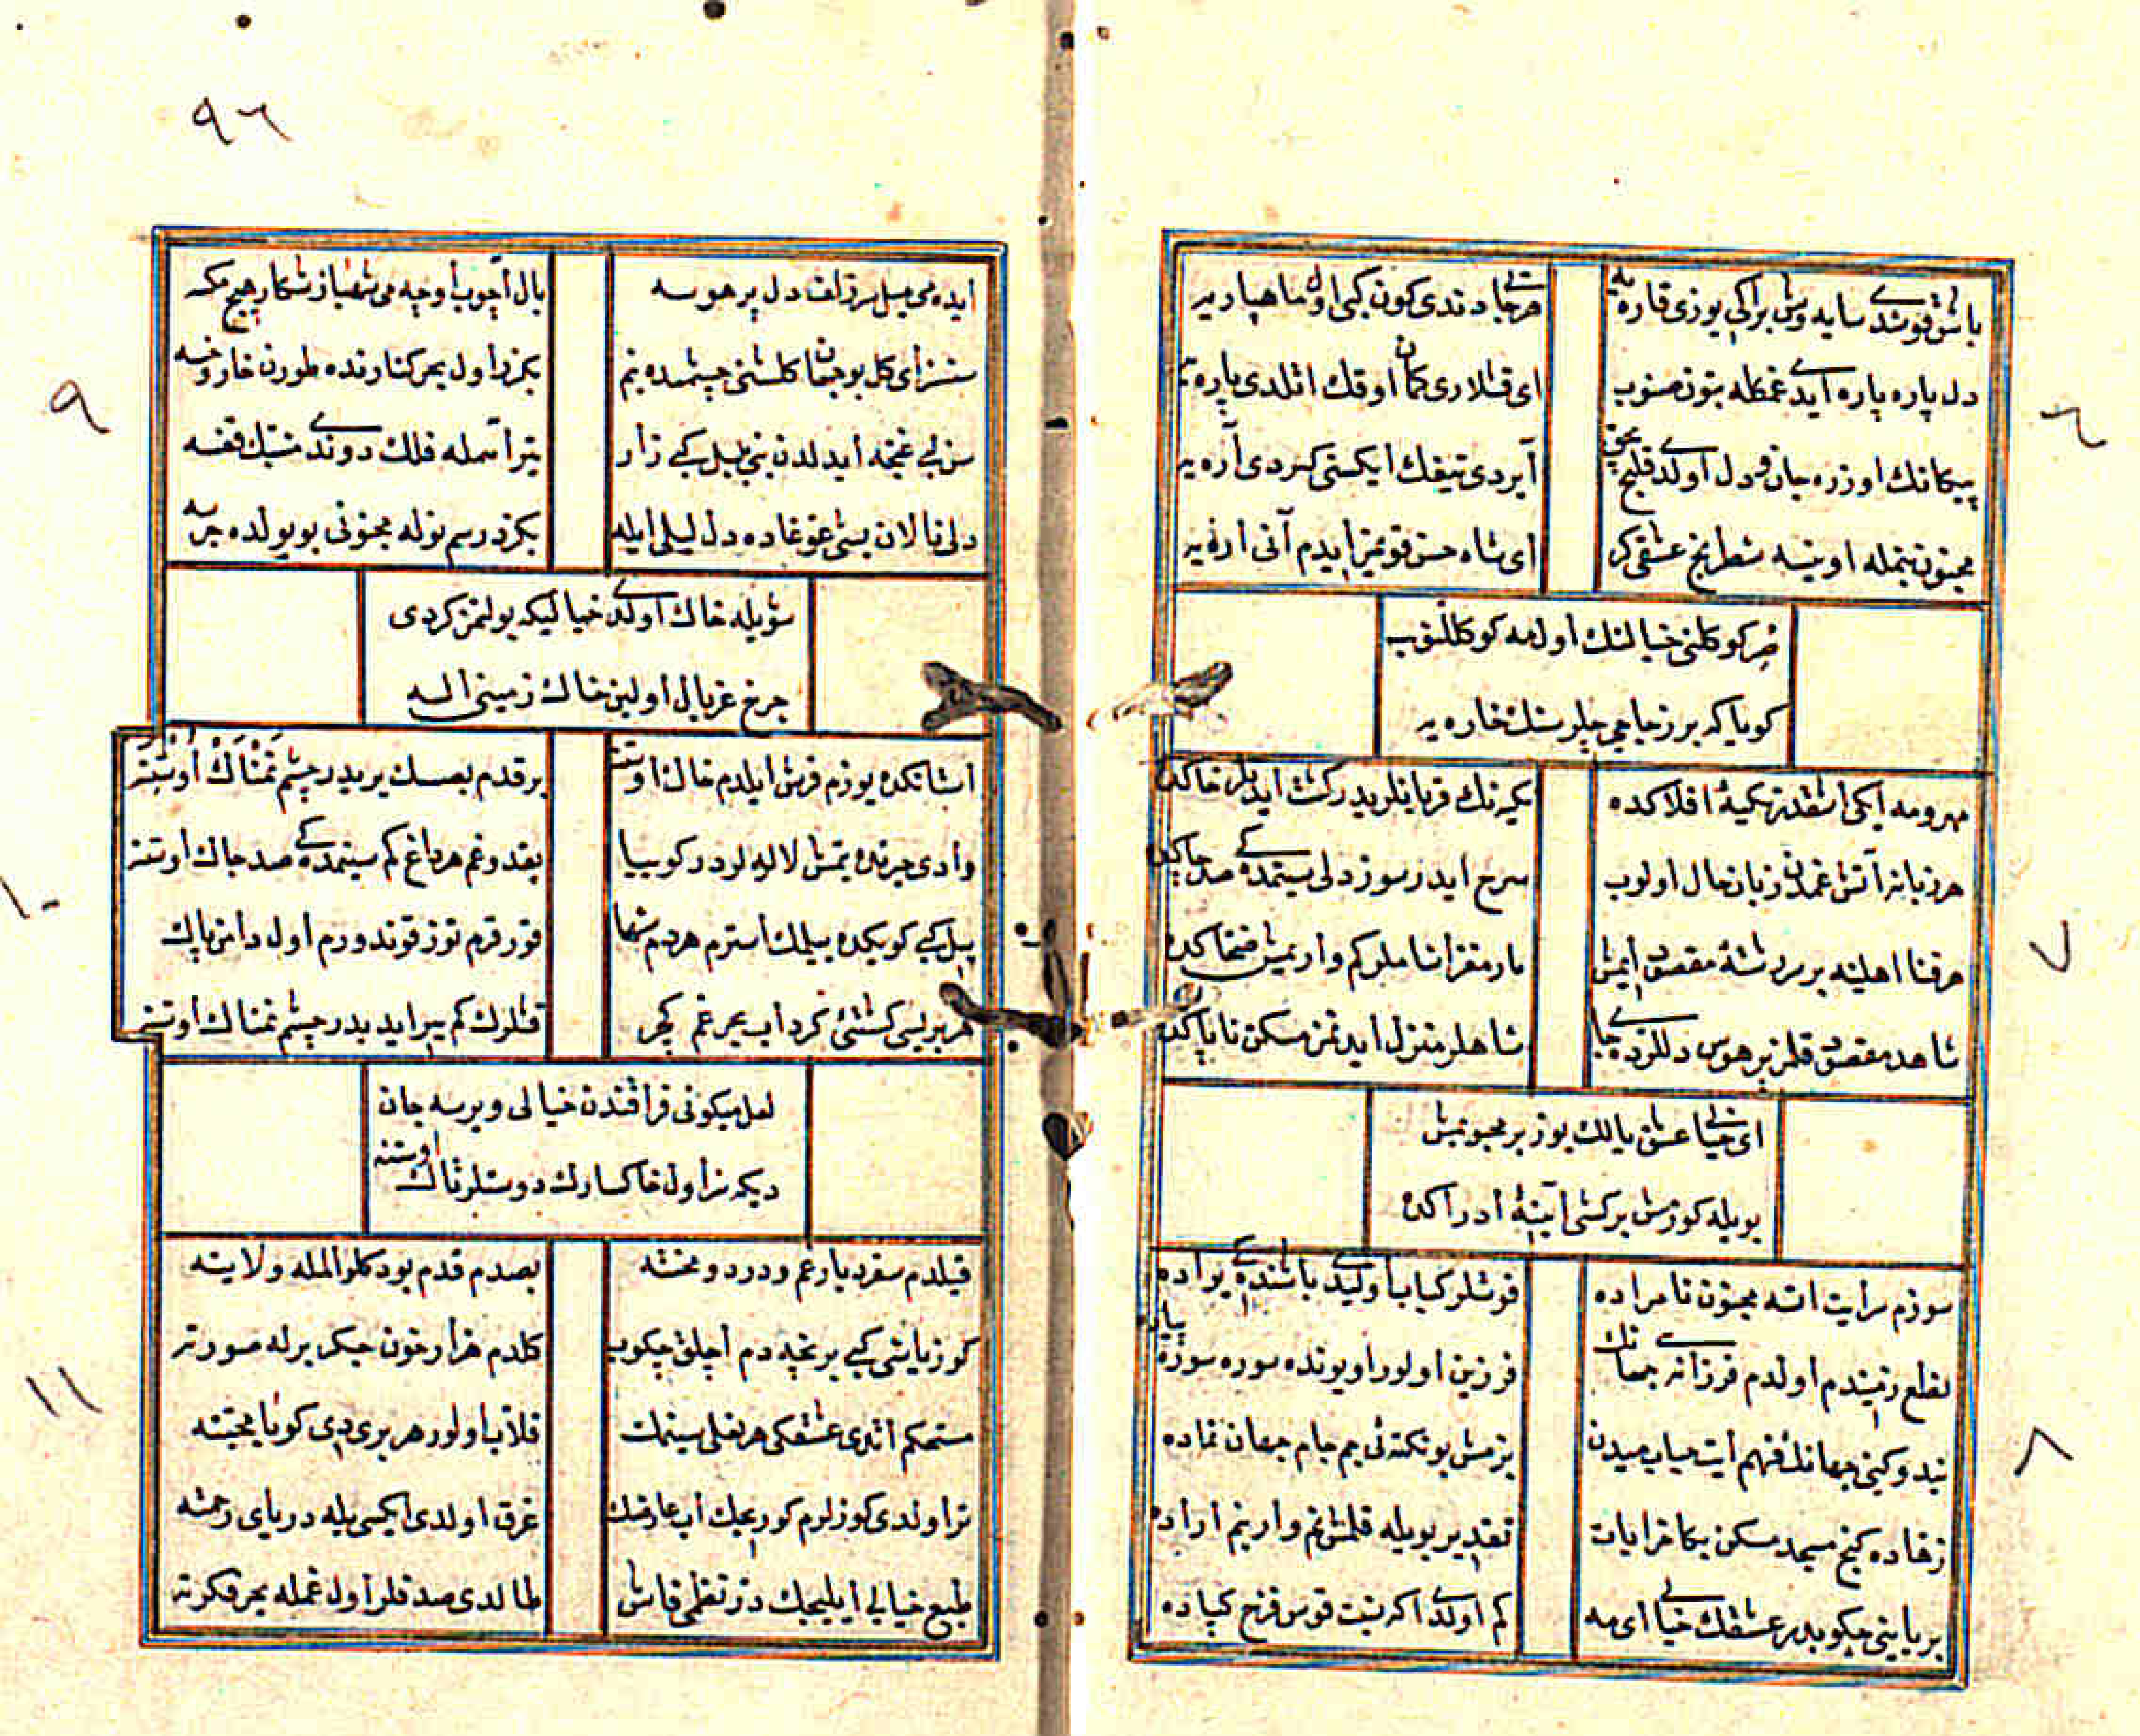 باشن قوشدی سایه وش براکی یوزی قاره یه
هرجا دندی کون کبی اول ماهپاریه
دل پاره پاره ایدی غمکله بتون صنوب
ای قاشلاری کمان اوقك اتلدی یاره یه
پیکانك اوزره جان و دل اولدی قلیچ
آیردی تیغك ایکسنی کردی آره یه
مجنون بنمله اوینسه شطرنج عشقی کر
ای شاه حسن قویمز ایدم آنی ارنه یه
کوکلنی خیالنك اول مه کوکللنوب
کویا که بر زجاجی چلر سنك خاره یه
٦
مهر و مه ایکی اشقدر تکیهٔ افلاکده
تکیه نك قربانلریدر کشت ایدنلر خاکده
هر زبانه آتش غمدن زبان حال اولوب
شرح ایدر سوز دلی سینمده کی صد چاکده
هر فنا اهلینه بر سررشتهٔ مقصود ایمش
مار مغز انسانلر کم وار یمش ضحاکده
شاهد مقصود قلمز پر هوس دللرده جا
شاهلر منزل ایدنمز مسکن ناپاکده
ای خیالی عشق یالك یوز بر مجنونیش
بویله کوزمش بر کشی آیینهٔ ادراکده
٧
سوزم سرایت اتسه مجنون نامراده
قوشلر کباب اولیدی باشنده کی یواده
نطع زمیندم اولدم فرزانه جهانك
فرزین اولور اویونده سوره سوره پیاده
نیدوکینی جهانك فهم ایت حباب میدن
یزمش بو نکته نی جم جام جهان نماده
زهاده کنج مسجد مسکن بکا خرابات
تقدیر بویله قلمش نم وار بنم اراده
بر یایینی چکوبدر عشقك خیالی ای مه
کم اولدی اکه نسبت قوس قزح کپاده
٨
٩٦
ایده می میل سر زلف دل پر هوسه
بال آچوب اوجه می شهباز شکار هیچ مکسه
سنسز ای کل بو جهان کلشنی چشممده بنم
بکزر اول بحر کنارنده طورن خار و خسه
سن لبی غنچه ایدلدن بنی بلبل کبی زار
تیر آهمله فلك دوندی مشبك قفسه
دل نالان بنی غوغاده دل لیلی ایله
بکزدرسم نوله مجنونی بو یولده جرسه
شویله خاك اولدی خیالیکه بولنمز کردی
چرخ غربال اولبن خاك زمینی السه
٩
آستانکده یوزم فرش ایلدم خاك اوستنه
بر قدم بصسك یریدر چشم نمناك اوستنه
وادی حیرتده بتمش لاله لردر کوییا
پنبه داغم هر داغ کم سینمده کی صد چاك اوستنه
یل کبی کویکده ییلمك استرم هردم شها
قورقرم توز قوندورم اول دامن پاك
هر بریسی کشتئ کرداب بحر غم کچر
قتلرك کم سیر ایدیدر چشم نمناك اوستنه
لعل میکونی فراقندن خیالی ویرسه جان
دیکه نز اول خاکسارك دوستلر تاك اوستنه
١٠
قیلدم سفر دیار غم و درد و محنته
بصدم قدم بو دکلو الم له ولایته
کوز یاشی کبی بر نیچه دم اچلق چکوب
کلدم هزار خون جکر برله صورته
مستحکم اتدی عشقکی هر نعلی سینه‌نك
قلاب اولور هر بری دی کویا محبته
تر اولدی کوزلرم کوریجك اب عارضك
غرق اولدی ایکسی بیله دریای رحمته
طبع خیالی ایلیجك در نظمی فاش
طالدی صدفلر اول غمله بحر فکرته
١١